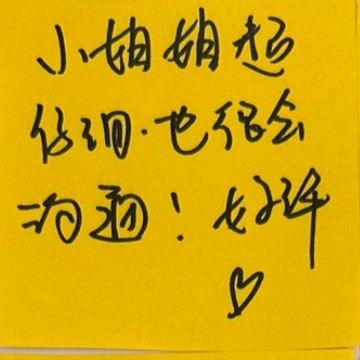 小姐姐超
仔细.也很会
沟通！好评
♡